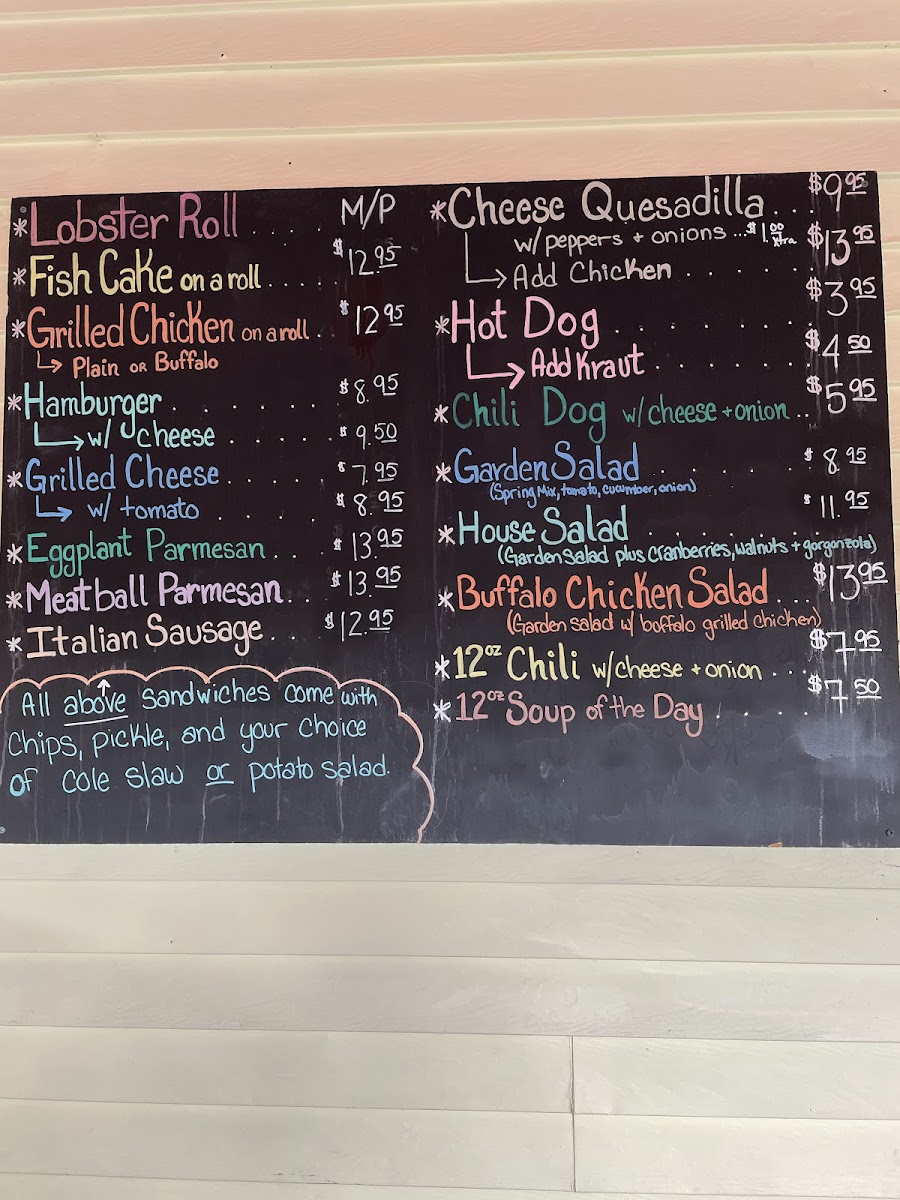 *Lobster Roll ..... M/P
*Fish Cake on a roll ..... $12.95
*Grilled Chicken on a roll . $12.95
↳ Plain or Buffalo
*Hamburger ....... $8.95
↳ w/ cheese ..... $9.50
*Grilled Cheese ..... $7.95
↳ w/ tomato ..... $8.95
*Eggplant Parmesan ... $13.95
*Meatball Parmesan .. $13.95
*Italian Sausage ... $12.95
All above sandwiches come with
Chips, pickle, and your choice
of cole slaw or potato salad.
*Cheese Quesadilla ... $9.95
w/ peppers + onions ... $1.00 xtra
↳ Add Chicken ...... $13.95
*Hot Dog ........ $3.95
↳ Add Kraut ...... $4.50
*Chili Dog w/ cheese + onion .. $5.95
*Garden Salad ...... $8.95
(Spring Mix, tomato, cucumber, onion)
*House Salad ....... $11.95
(Garden Salad plus cranberries, walnuts + gorgonzola)
*Buffalo Chicken Salad ... $13.95
(Garden salad w/ buffalo grilled chicken)
*12oz Chili w/ cheese + onion .. $7.95
*12oz Soup of the Day ..... $7.50